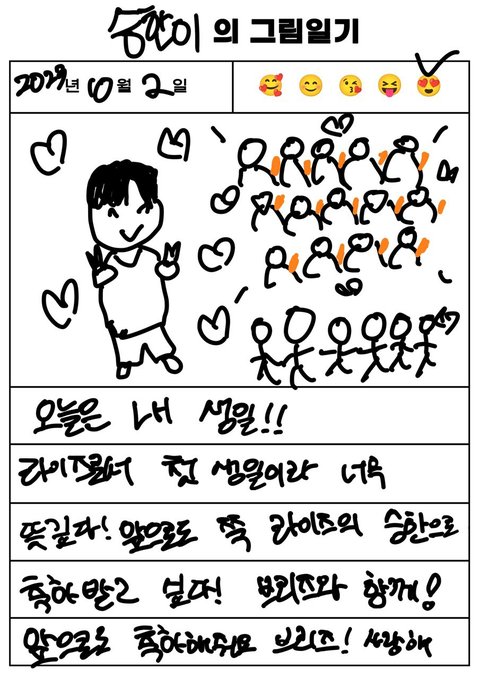 승한이의 그림일기
2023년 10월 2일
오늘은 내 생일!!
라이즈로서 첫 생일이라 너무
뜻깊다! 앞으로도 쭉 라이즈의 승한으로
축하받고 싶다! 브리즈와 함께!
앞으로도 축하해줘요 브리즈! 사랑해